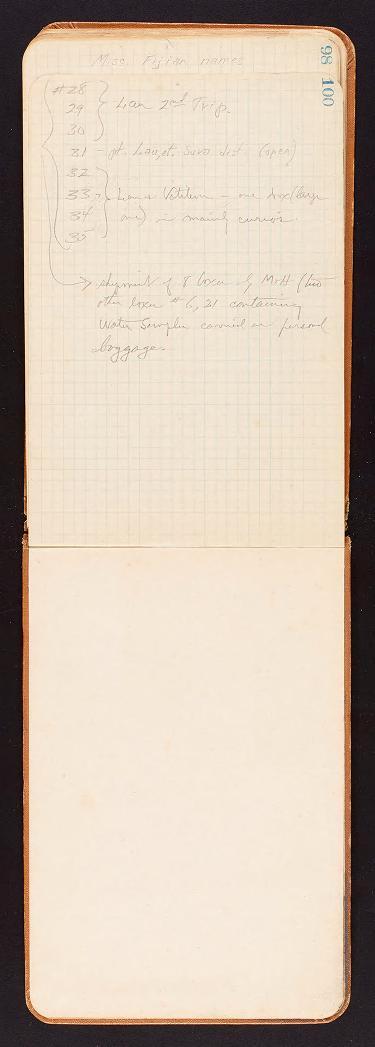 98 100
Misc. Fijian names
#28
29 Lau 2nd Trip.
30
31 - pt. Lau, pt. Suva dist. (open)
32
33 Lau & Vitilevu - one box (large
34 one) is mainly curios.
35
shipment of 8 boxes by M&H (two
other boxes #6, 21 containing
Water Samples carried as personal
baggage.